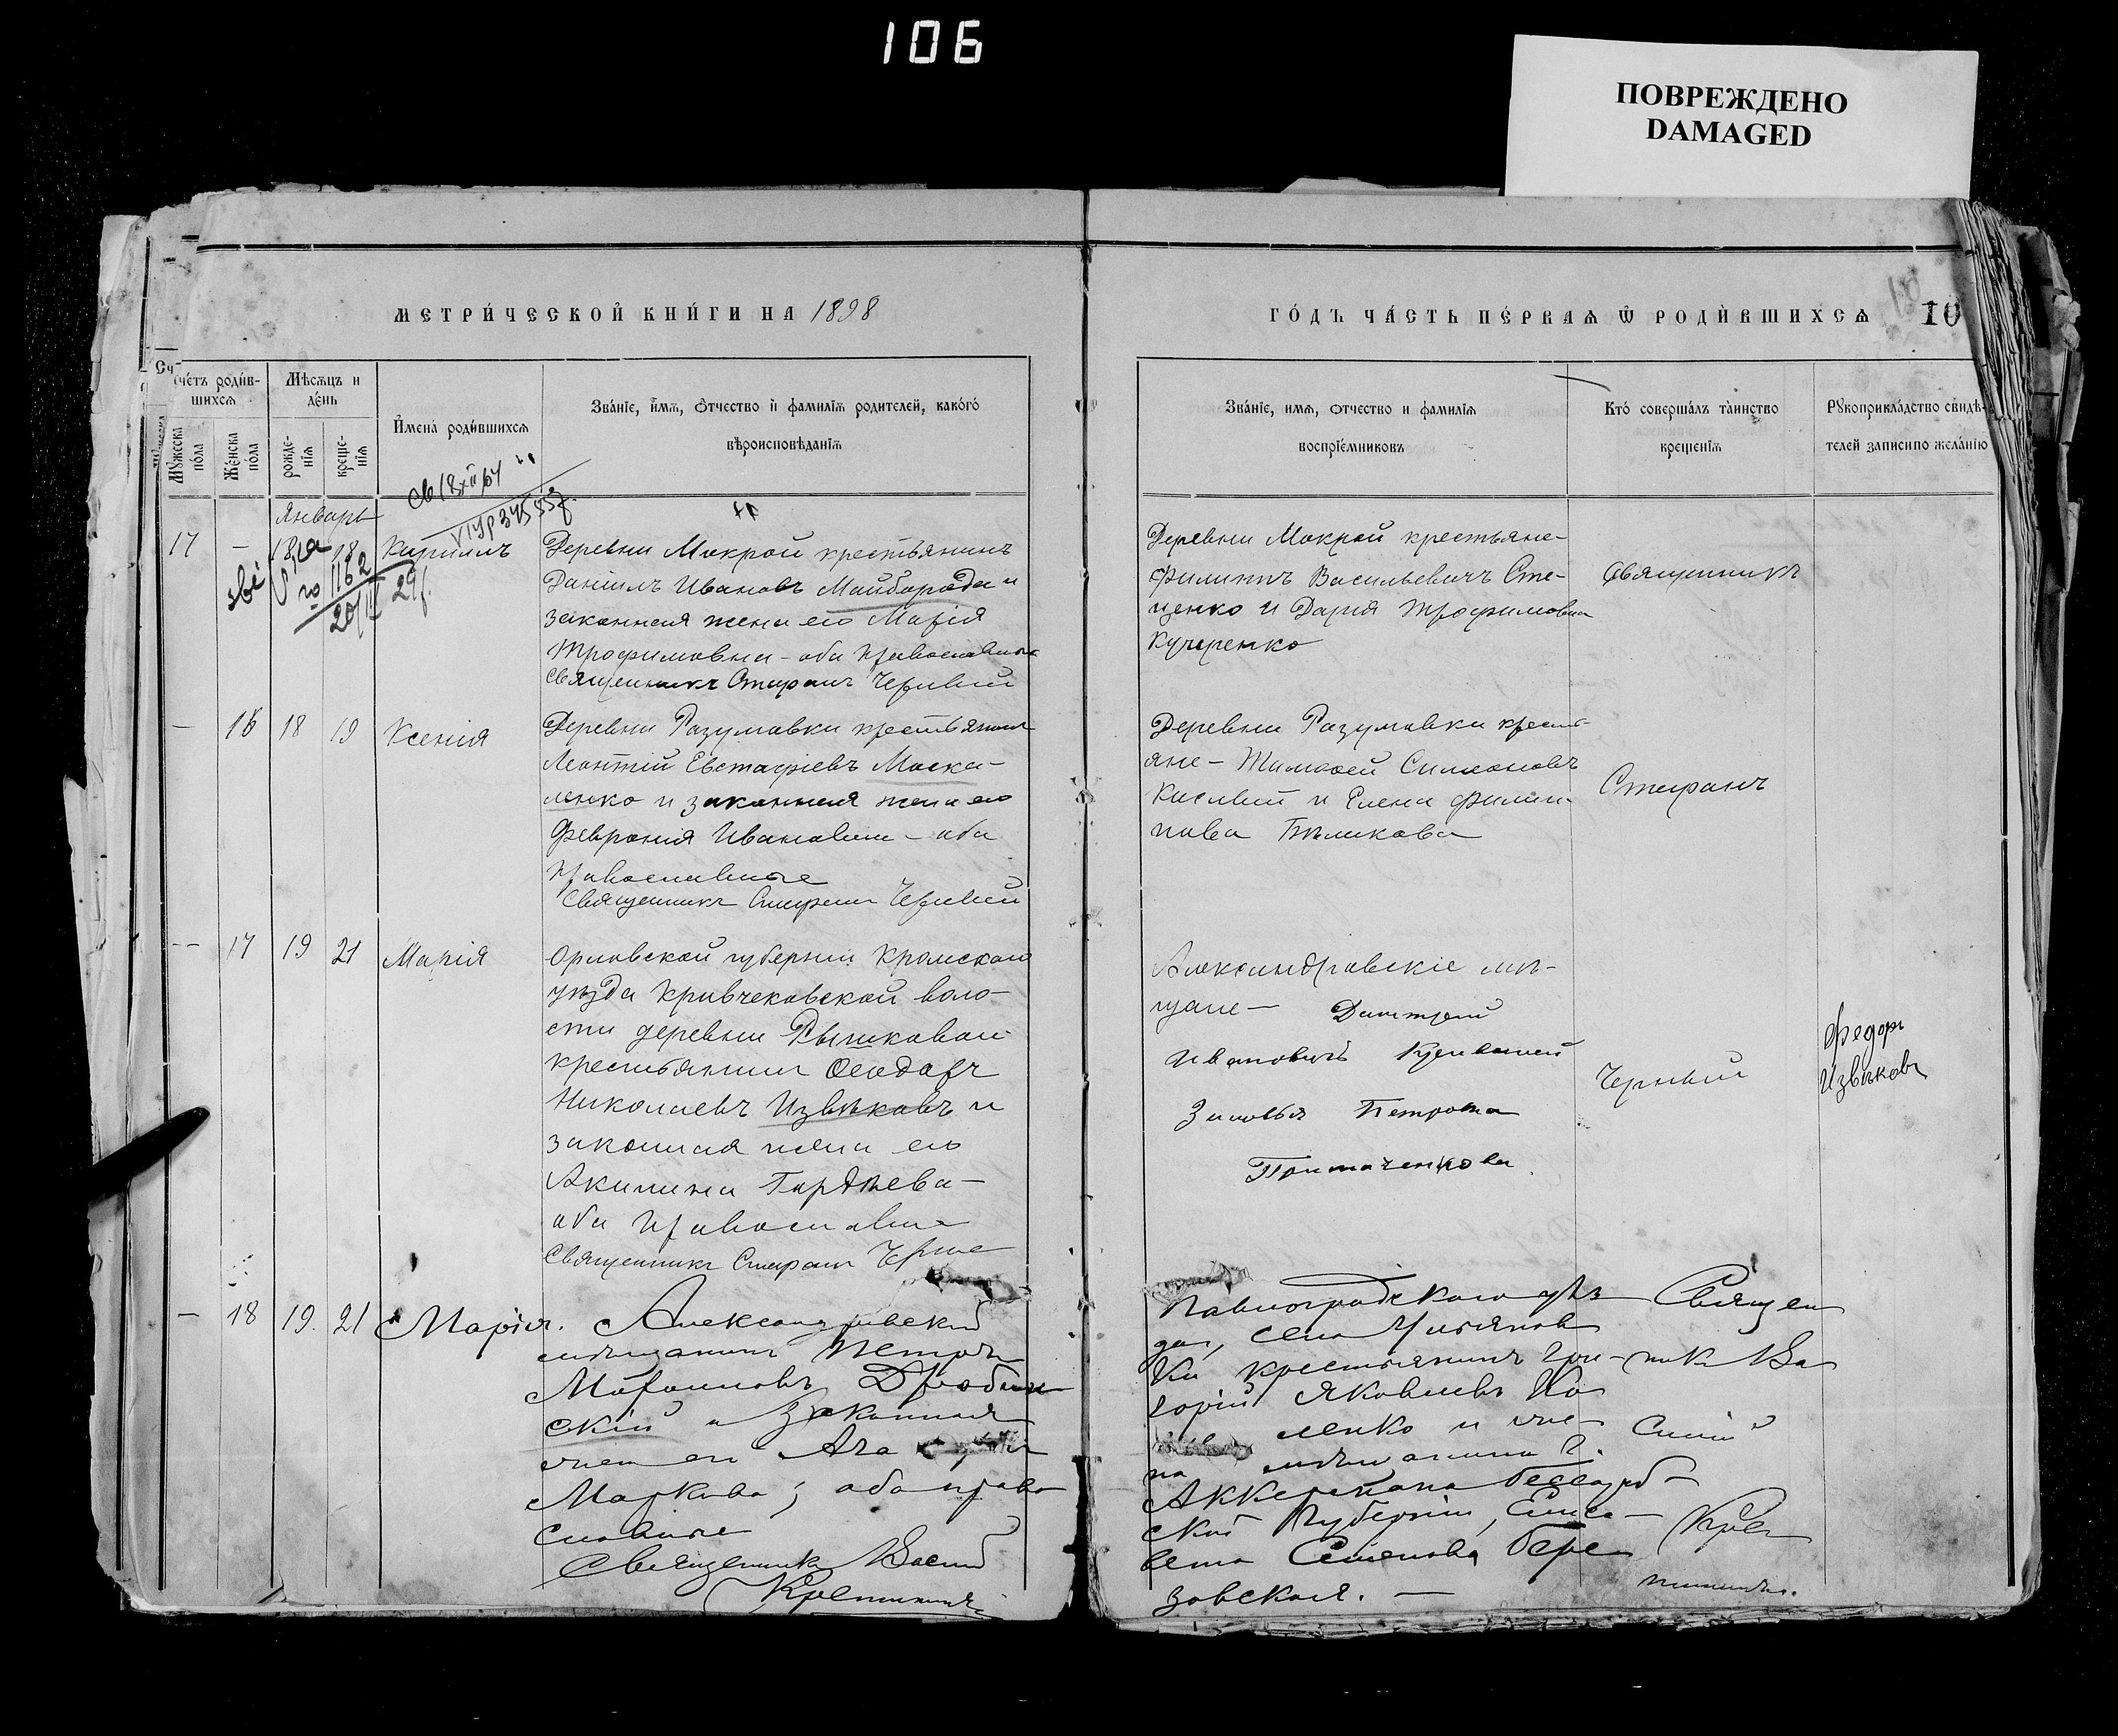 106
ПОВРЕЖДЕНО
DAMAGED
МЕТРИ́ЧЕСКОЙ КНИ́ГИ НА 1898
ГО́ДЪ ЧА́СТЬ ПЕ́РВАѦ Ѿ РОДИ́ВШИХСѦ 10
Сче́тъ роди́в-
шихсѧ
Мѣ́сѧцъ и
де́нь
И҆мена̀ роди́вшихсѧ
Зва́нїе, и҆́мѧ, ѻ҆́тчество и҆ фамилїѧ родителей, како́гѡ
вѣроисповѣ́данїѧ
Му́жеска
по́ла
Же́нска
по́ла
рожде-
нїѧ
креще-
нїѧ
Зва́нїе, имѧ, ѻтчество и фамилїѧ
воспрїе́мниковъ
Кто́ соверша́лъ та́инство
креще́нїѧ
Рꙋкоприкла́дство свидѣ́-
телей записи по жела́нїю
Январь
17 — 18 18 Кириллъ
1162
Деревни Мокрой крестьянинъ
Даніилъ Ивановъ Майборода и
законная жена его Марія
Трофимовна – оба православные
Священникъ Стефанъ Черный
Деревни Мокрой крестьяне–
Филиппъ Васильевичъ Сте-
ценко и Дарія Трофимовна
Кучеренко
Священникъ
— 16 18 19 Ксенія
Деревни Разумовки крестьянинъ
Леонтій Евстафіевъ Моска-
ленко и законная жена его
Феврония Ивановна – оба
православные
Священникъ Стефанъ Черный
Деревни Разумовки кресть-
яне – Тимофей Симеоновъ
Кислый и Елена Филип-
пова Бѣликова
Стефанъ
-- 17 19 21 Марія
Орловской губерніи Кромскаго
уѣзда Кривчековской воло-
сти деревни Рышковой
крестьянинъ Ѳеодоръ
Николаевъ Извѣковъ и
законная жена его
Акилина Гордѣева –
оба православные
Священникъ Стефанъ Черный
Александровскіе мѣ-
щане – Дмитрий
Ивановичъ
Зиновья Петрова
Притаченкова
Черный
Федоръ
Извѣковъ
— 18 19. 21 Марія.
Александровскій
мѣщанинъ Петръ
скій и законная
Маркова; оба право
славные
Священникъ Васил
Павлоградскаго уѣз
да, села Ульянов
ки крестьянинъ Гри-
горій Яковлевъ Ко
ленко и
Аккермана Бессараб-
ской Губерніи, Елиса-
вета Семенова Бере
зовская. —
Священ
никъ Ва
силій